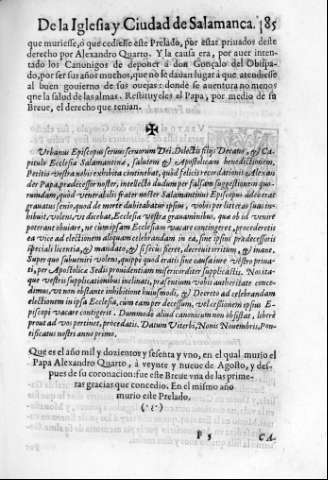 De la Iglesia y Ciudad de Salamanca. 185
que muriesse, ò que cediesse este Prelado, por estar priuados deste
derecho por Alexandro Quarto. Y la causa era, por auer inten-
tado los Canonigos de deponer à don Gonçalo del Obispa-
do, por ser sus años muchos, que no se dauan lugar à que atendiesse
al buen gouierno de sus ouejas: donde se auentura no menos
que la salud de las almas. Restituyeles al Papa, por medio de su
Breue, el derecho que tenian.
Vrbanus Episcopus seruus seruorum Dei. Dilectis filijs Decano, & Ca-
pitulo Ecclesiæ Salamantinæ, salutem & Apostolicam benedictionem.
Petitio vestra nobis exhibita continebat, quòd felicis recordationis Alexan-
der Papa, prædecessor noster, intellecto dudum per falsam suggestionem quo-
rumdam, quòd venerabili frater noster Salamantinus Episcopus adeo erat
grauatus senio, quod de morte dubitabatur ipsius, vobis per litteras suas in-
hibuit, volens, vt dicebat, Ecclesiæ vestræ grauaminibus, quæ ob id venire
poterant obuiare, ne cùm ipsam Ecclesiam vacare contingeret, procederetis
ea vice ad electionem aliquam celebrandam in ea, sine ipsius prædecessoris
speciali licentia, & mandato, & si secus fieret, decreuit irritum, & inane.
Super quo subueniri volens, quippe quod eratis sine causa iure vestro priua-
ti, per Apostolicæ Sedis prouidentiam misericorditer supplicastis. Nos ita-
que vestris supplicationibus inclinati, præsentium vobis authoritate conce-
dimus, vt non obstante inhibitione huiusmodi, & Decreto ad celebrandam
electionem in ipsa Ecclesia, cùm eam per decessum, vel cessionem ipsius E-
piscopi vacare contigerit. Dummodo aliud canonicum non obsistat, liberè
prout ad vos pertinet, procedatis. Datum Viterbij, Nonis Nouembris, Pon-
tificatus nostri anno primo.
Que es el año mil y dozientos y sesenta y vno, en el qual murio el
Papa Alexandro Quarto, à veynte y nueue de Agosto, y des-
pues de su coronacion: fue este Breue vna de las prime-
ras gracias que concedio. En el mismo año
murio este Prelado.
P 5 CA-